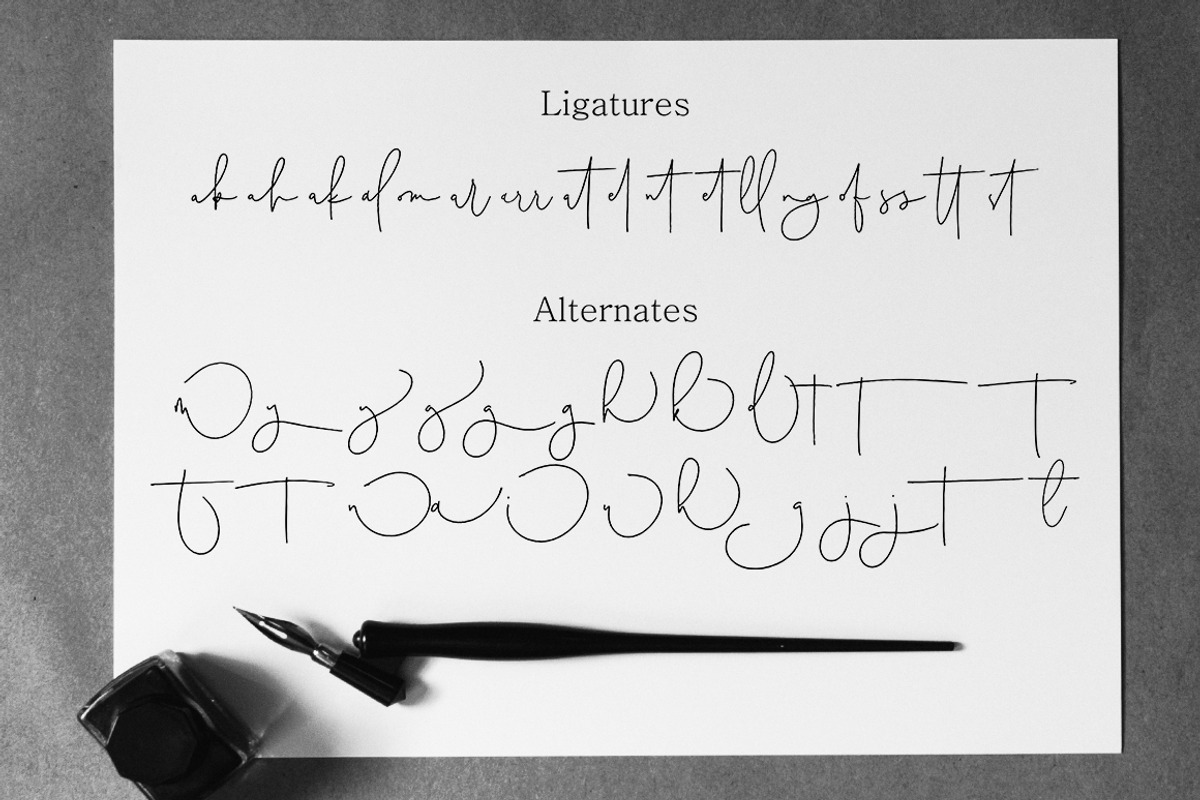 Ligatures
ak ah ak al om ar err at el nt et ll ng of ss tt st
Alternates
m y y g g g h k l t T T
t T n a i v h g j j t t